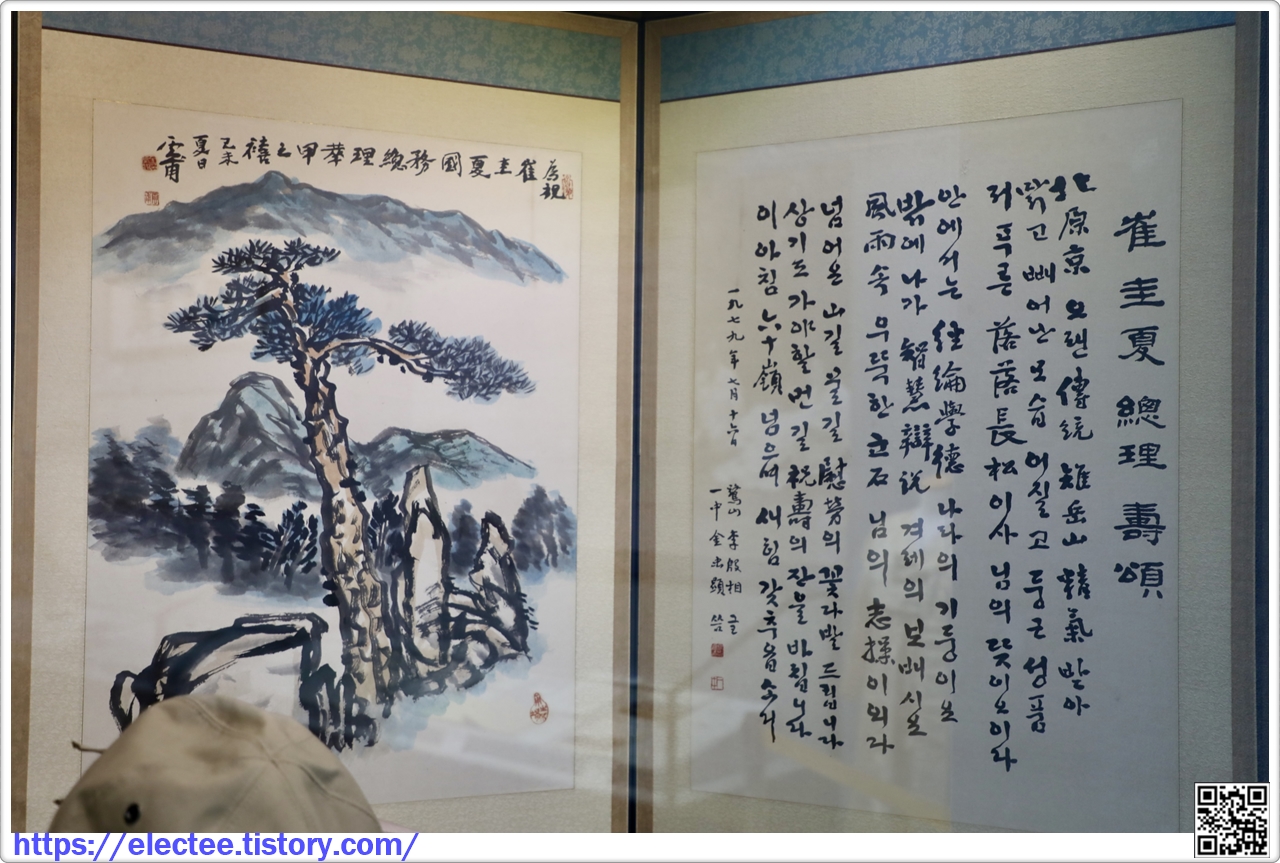 爲祝
崔圭夏國務總理華甲之禧
己未
夏日
雲甫
崔圭夏總理壽頌
北原京 오랜 傳統 雉岳山 精氣 받아
맑고 빼어난 모습 어질고 둥근 성품
저 푸른 落落長松이사 님의 뜻이오이다
안에서는 經綸學德 나라의 기둥이오
밖에 나가 智慧辯說 겨레의 보배시오
風雨속 우뚝한 님의 志操이외다
넘어온 山길 물길 慰勞의 꽃다발 드립니다
상기도 가야할 먼길 祝壽의 잔을 바칩니다
이 아침 六十嶺 넘으며 새힘 갖추옵소서
一九七九年 七月 十六日
鷺山 李殷相 글
一中 金忠顯 씀
https://electee.tistory.com/